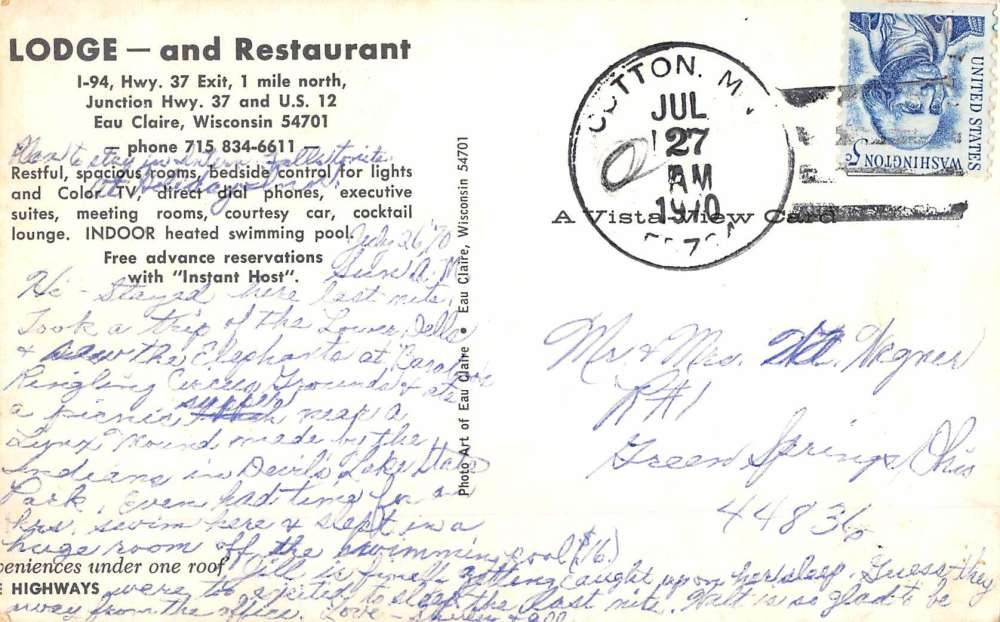 LODGE — and Restaurant
I-94, Hwy. 37 Exit, 1 mile north,
Junction Hwy. 37 and U.S. 12
Eau Claire, Wisconsin 54701
— phone 715 834-6611 —
Restful, spacious rooms, bedside control for lights
and Color TV, direct dial phones, executive
suites, meeting rooms, courtesy car, cocktail
lounge. INDOOR heated swimming pool.
Free advance reservations
with "Instant Host".
Plan to stay in Intern. Falls tonite
at Holiday Inn
July 26, '70
Sun A.M.
Hi - Stayed here last nite.
Took a trip of the Lower Dells
& saw the Elephants at Baraboo
Ringling Circus Grounds & ate
a picnic supper near a
Lynx Mound made by the
Indians in Devil's Lake State
Park. Even had time for an
hrs. swim here & slept in a
huge room off the swimming pool ($16)
Jill is finally getting caught up on her sleep. Guess they
were too excited to sleep the last nite. Walt is so glad to be
away from the office. Love - & all
veniences under one roof
E HIGHWAYS
Photo Art of Eau Claire • Eau Claire, Wisconsin 54701
A Vista-View Card
COTTON, MN
JUL
27
AM
1970
UNITED STATES
WASHINGTON 5c
Mr & Mrs. Wegner
R#1
Green Springs, Ohio
44836